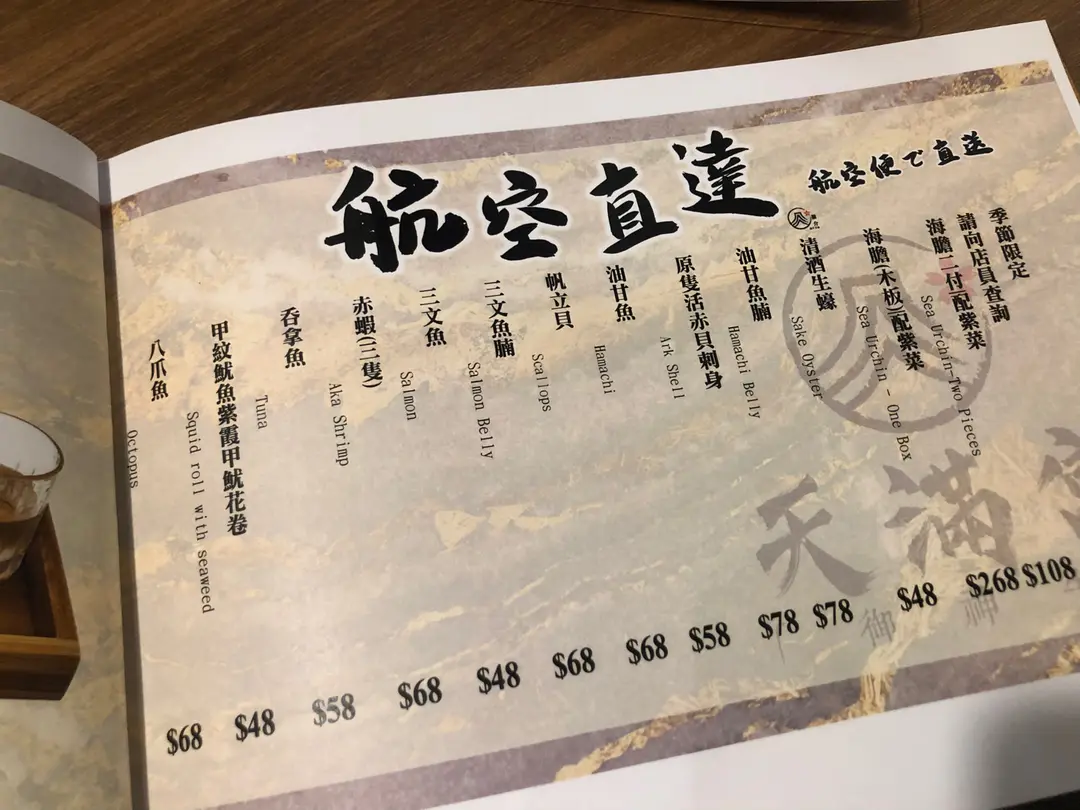 航空直達
航空便で直送
季節限定
請向店員查詢
海膽二付配紫菜
Sea Urchin-Two Pieces
$108
海膽(木板)配紫菜
Sea Urchin - One Box
$268
清酒生蠔
Sake Oyster
$48
油甘魚腩
Hamachi Belly
$78
原隻活赤貝刺身
Ark Shell
$78
油甘魚
Hamachi
$58
帆立貝
Scallops
$68
三文魚腩
Salmon Belly
$68
三文魚
Salmon
$48
赤蝦(二隻)
Aka Shrimp
$68
吞拿魚
Tuna
$58
甲紋魷魚紫霞甲魷花卷
Squid roll with seaweed
$48
八爪魚
Octopus
$68
天滿
御神